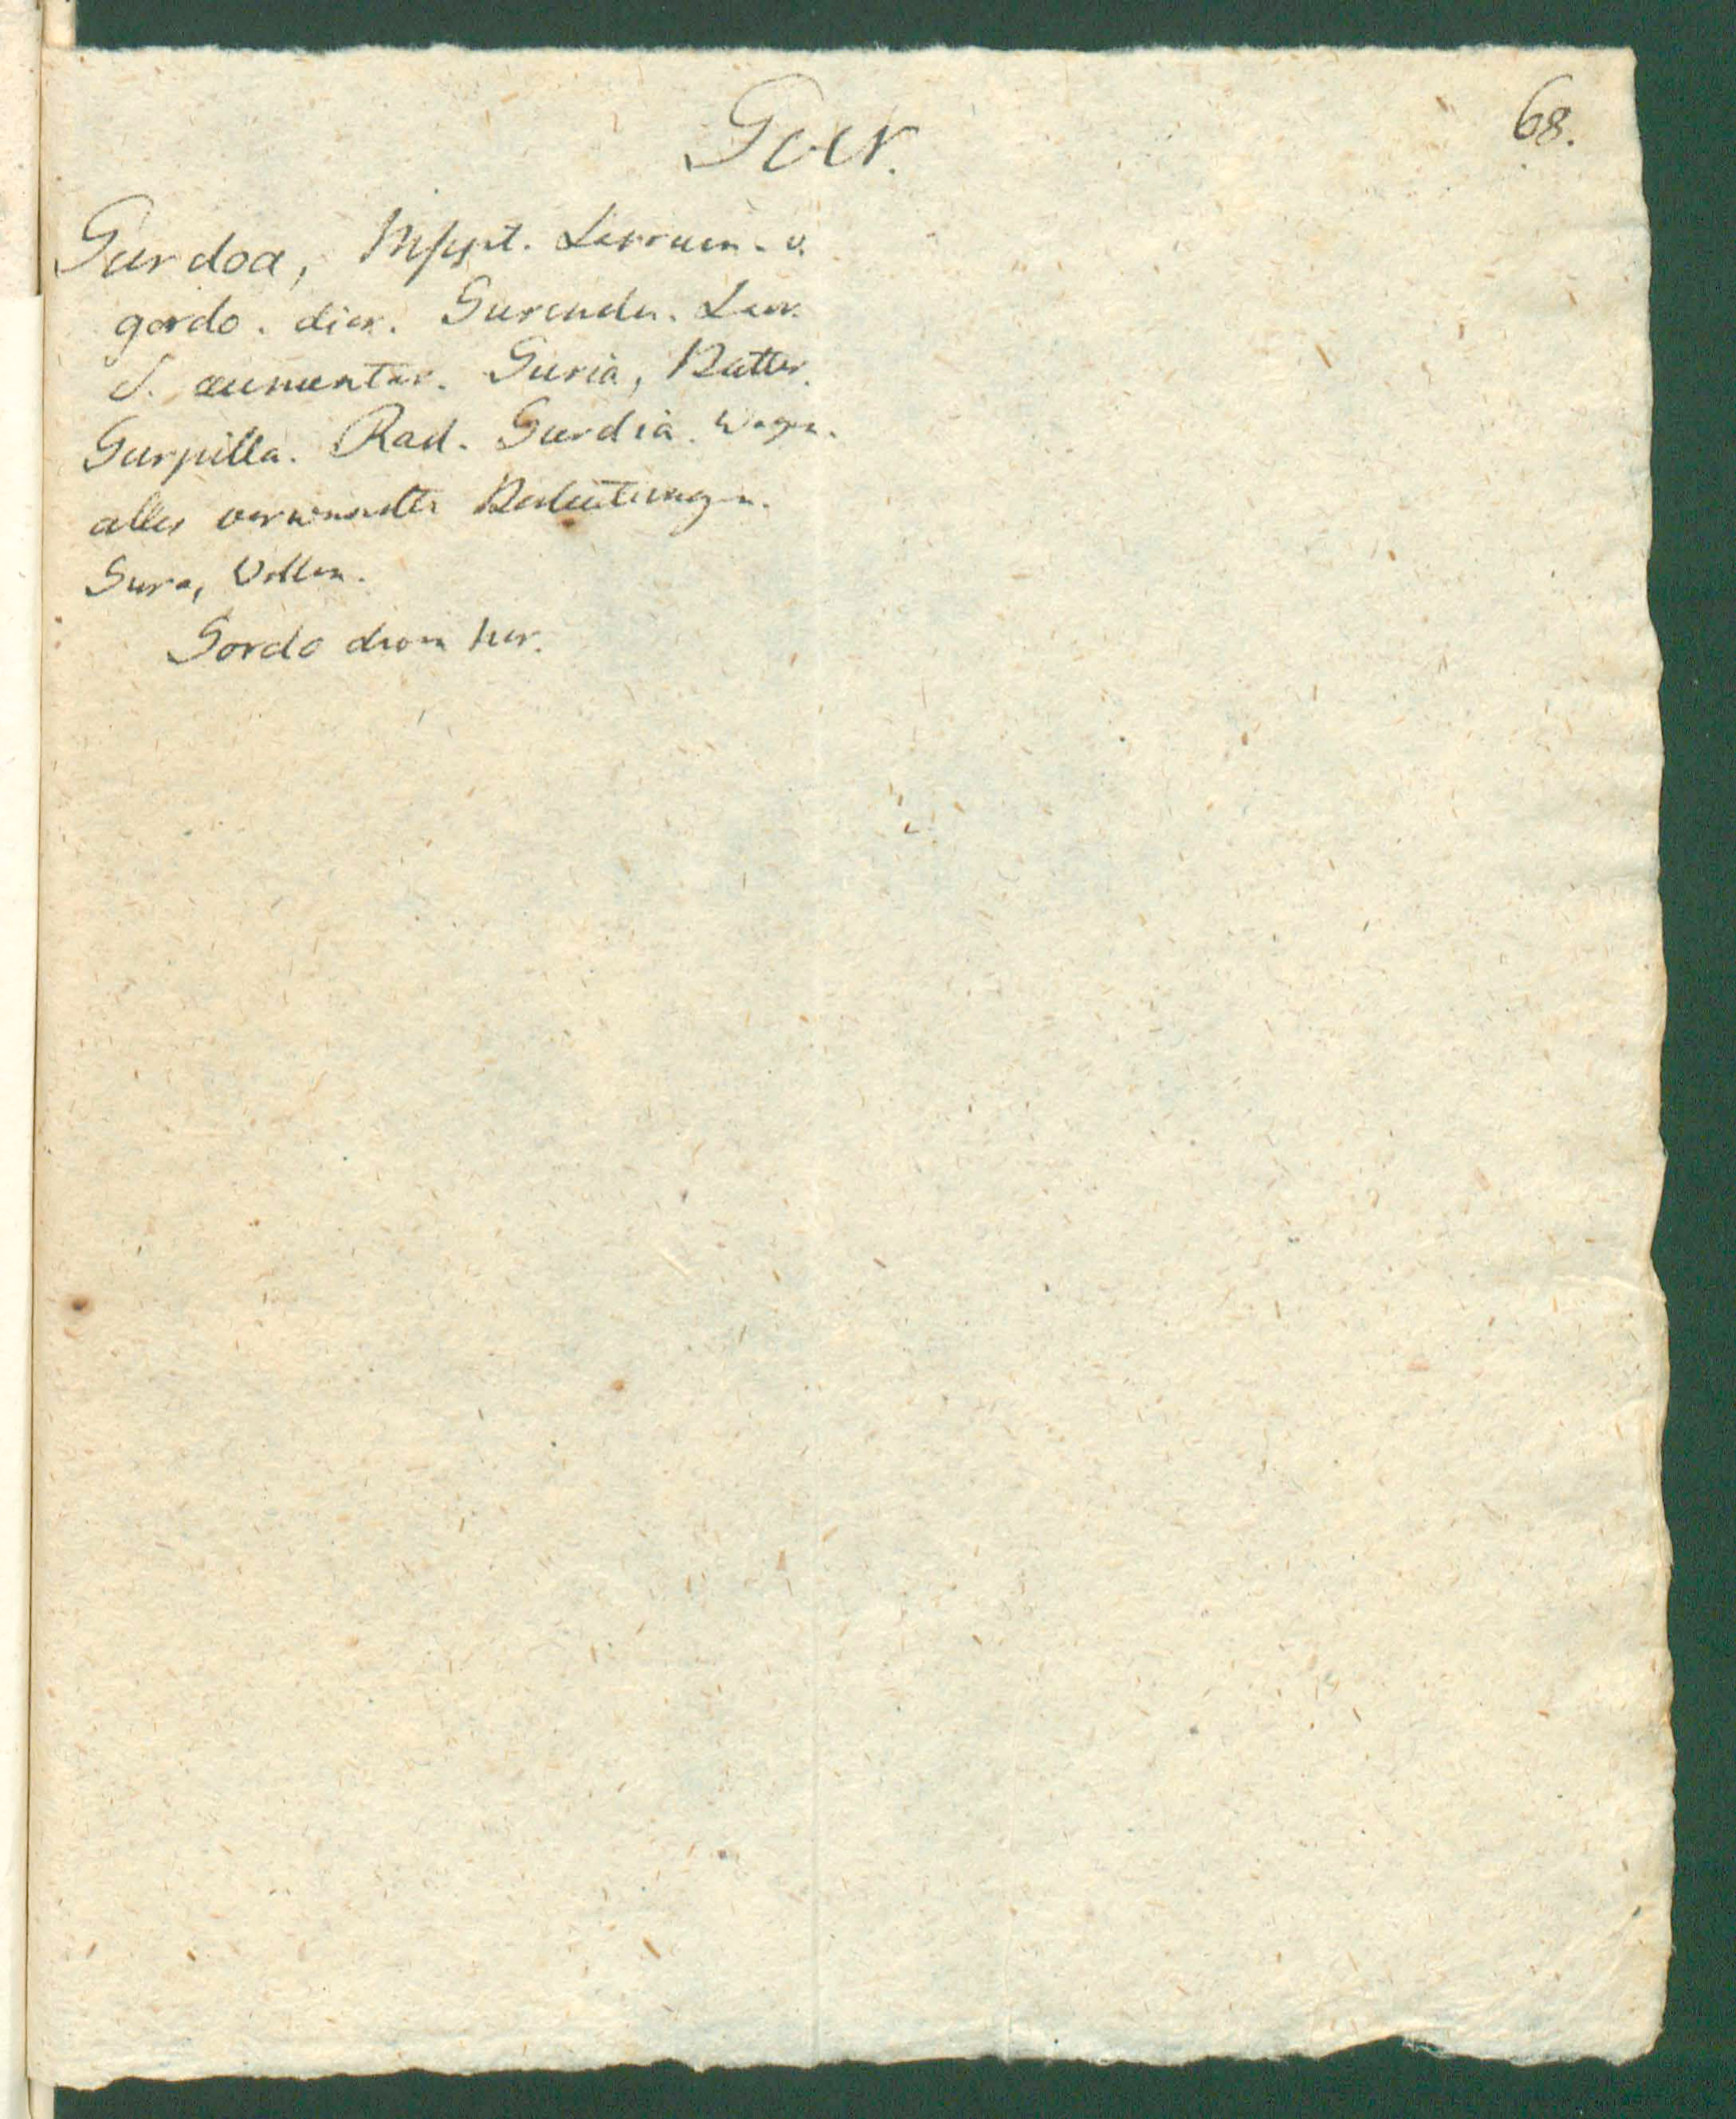 Gur.
68.
Gurdoa, Mspt. Larram. v.
gordo. dicr. Gurendu. Larr.
S. aumentar. Guria, Butter.
Gurpilla. Rad. Gurdia. Wagen.
alles verwandte Bedeutungen.
Gura, Wollen.
Gordo davon her.